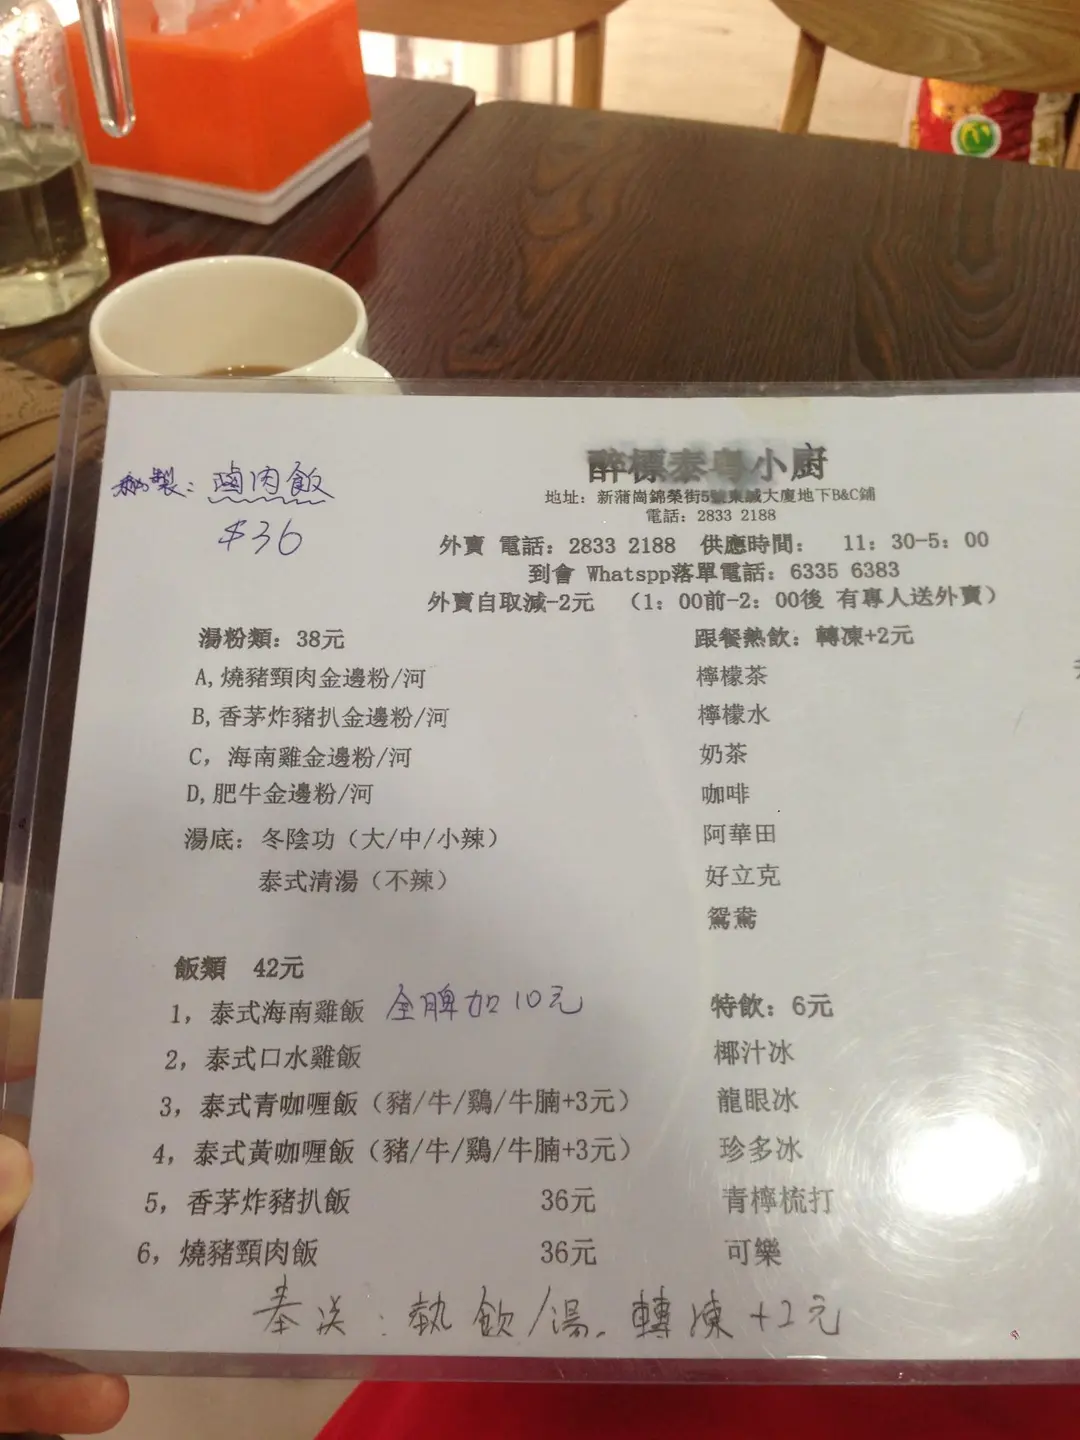 秘製：鹵肉飯
$36
醉標泰粵小廚
地址：新蒲崗錦榮街5號東誠大廈地下B&C鋪
電話：2833 2188
外賣 電話：2833 2188 供應時間： 11：30-5：00
到會 Whatspp落單電話：6335 6383
外賣自取減-2元 （1：00前-2：00後 有專人送外賣）
湯粉類：38元
A,燒豬頸肉金邊粉/河
B,香茅炸豬扒金邊粉/河
C，海南雞金邊粉/河
D,肥牛金邊粉/河
湯底：冬陰功（大/中/小辣）
泰式清湯（不辣）
飯類 42元
1，泰式海南雞飯 全髀加10元
2，泰式口水雞飯
3，泰式青咖喱飯（豬/牛/鷄/牛腩+3元）
4，泰式黃咖喱飯（豬/牛/鷄/牛腩+3元）
5，香茅炸豬扒飯 36元
6，燒豬頸肉飯 36元
跟餐熱飲：轉凍+2元
檸檬茶
檸檬水
奶茶
咖啡
阿華田
好立克
鴛鴦
特飲：6元
椰汁冰
龍眼冰
珍多冰
青檸梳打
可樂
奉送：熱飲/湯. 轉凍+2元